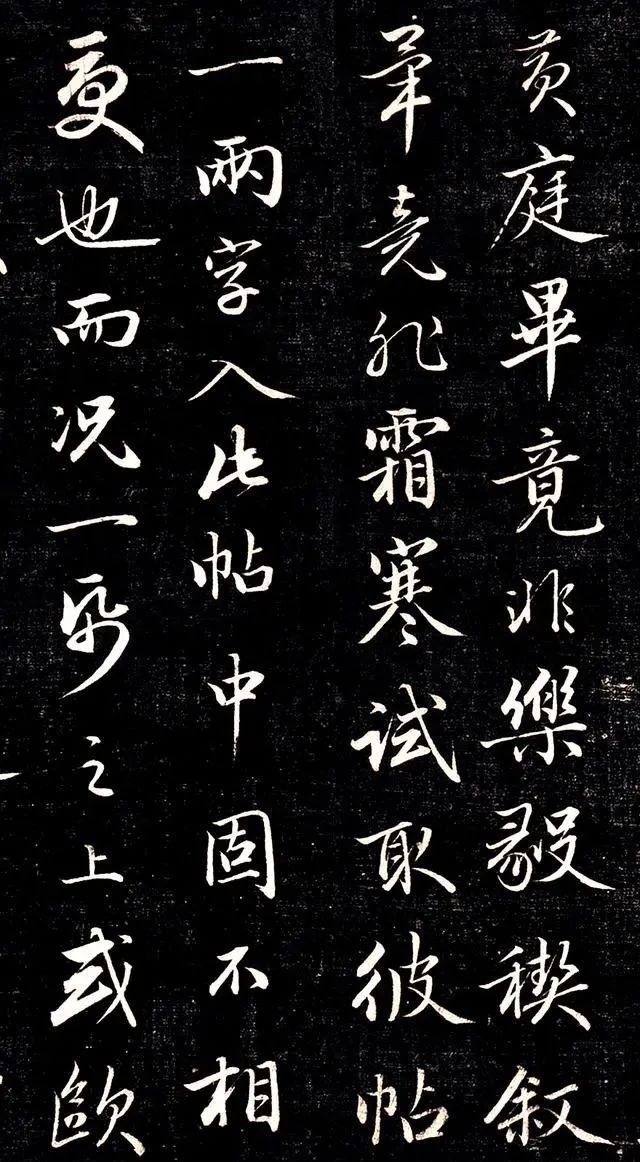 黄庭畢竟非樂毅稧叙
畢竟非霜寒試取彼帖
一兩字入此帖中固不相
更也而况一帋之上或歐